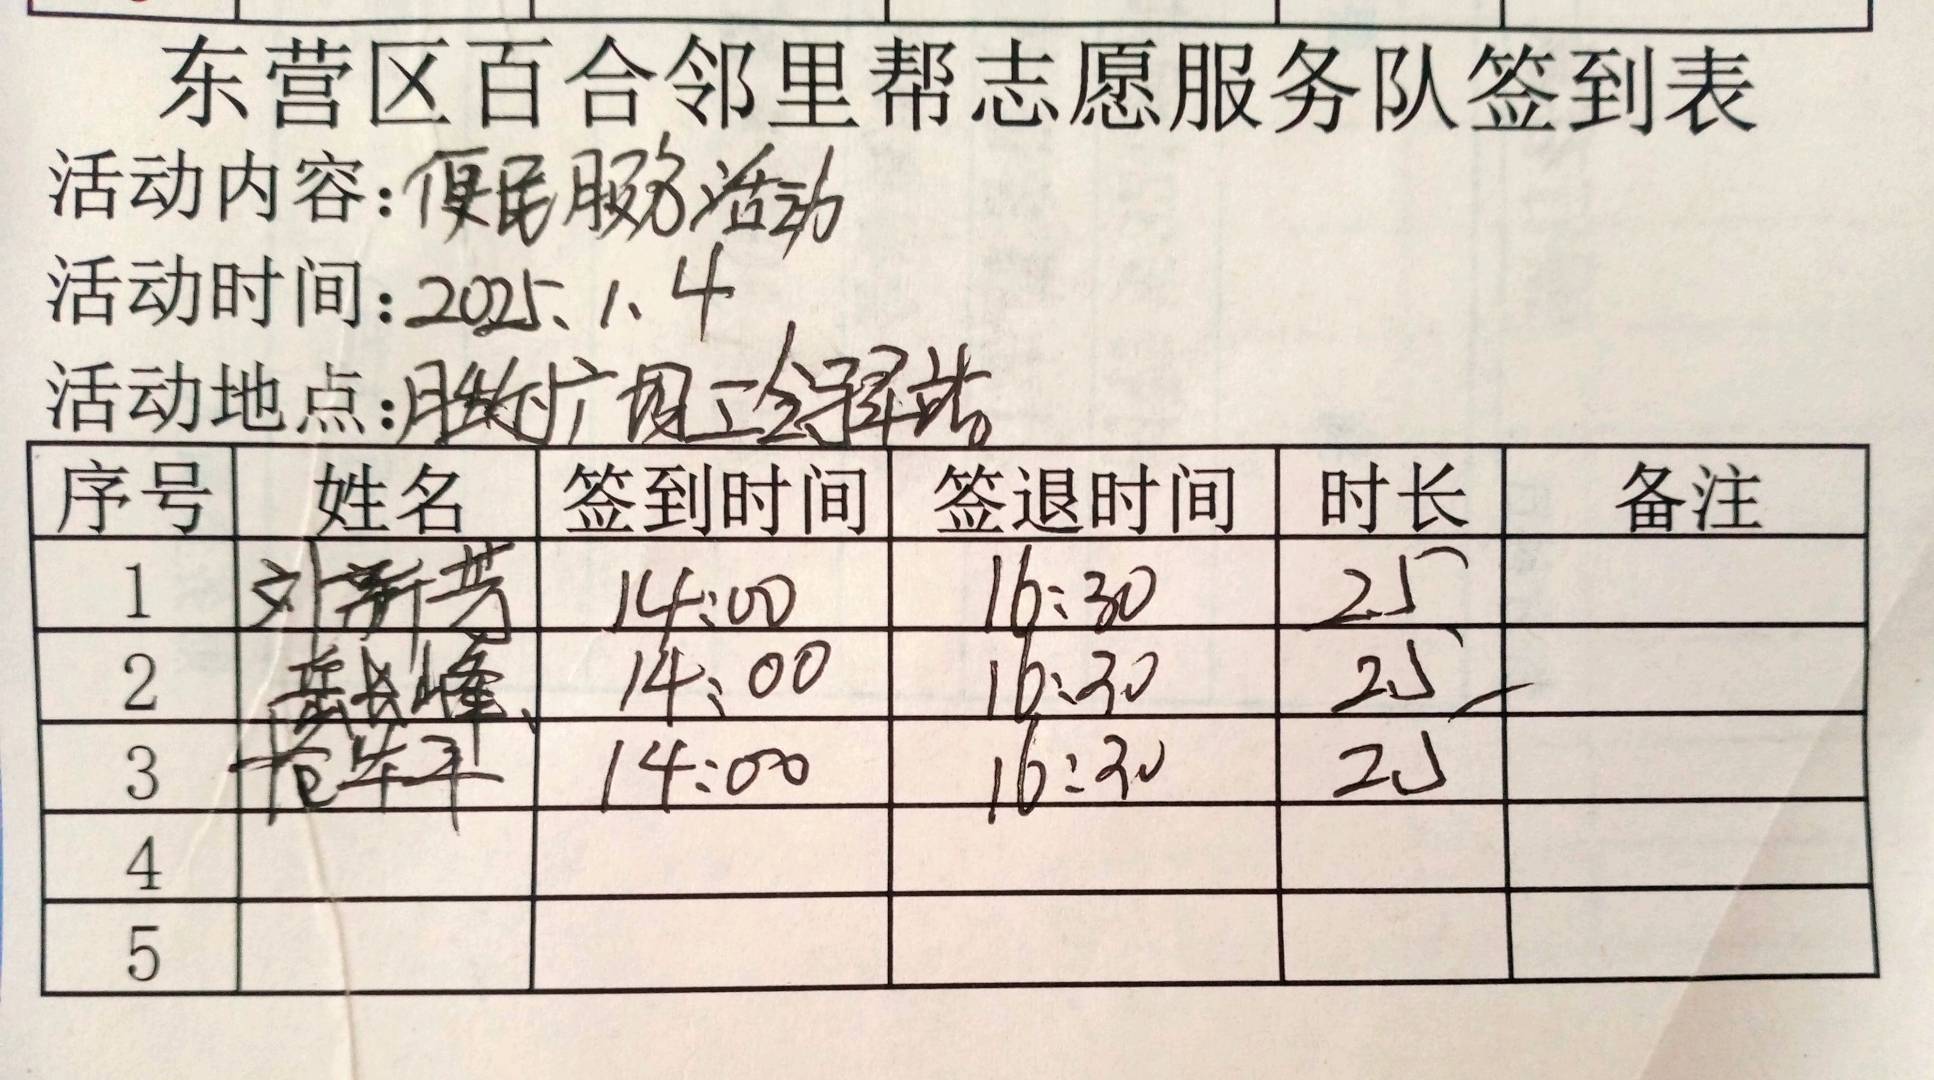 东营区百合邻里帮志愿服务队签到表
活动内容:便民服务活动
活动时间:2025.1.4
活动地点:胜利广场工会驿站
序号 姓名 签到时间 签退时间 时长 备注
1 刘新芳 14:00 16:30 2.5
2 岳长峰 14:00 16:30 2.5
3 14:00 16:30 2.5
4
5